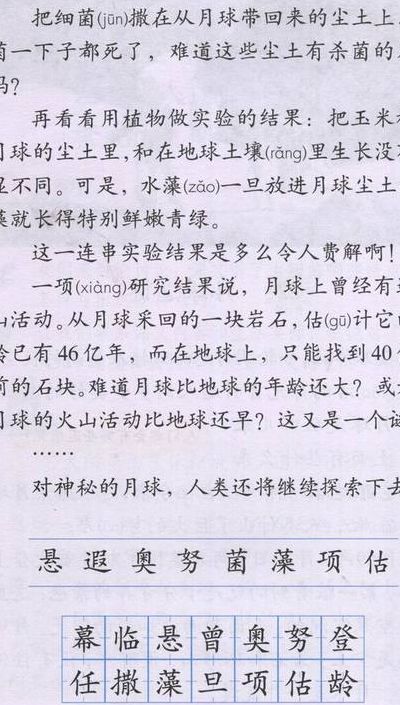 把细菌(jūn)撒在从月球带回来的尘土上
菌一下子都死了,难道这些尘土有杀菌的
吗?
再看看用植物做实验的结果:把玉米
月球的尘土里,和在地球土壤(rǎng)里生长没
显不同。可是,水藻(zǎo)一旦放进月球尘土
藻就长得特别鲜嫩青绿。
这一连串实验结果是多么令人费解啊!
一项(xiàng)研究结果说,月球上曾经有
山活动。从月球采回的一块岩石,估(gū)计它
龄已有46亿年,而在地球上,只能找到40
前的石块。难道月球比地球的年龄还大?或
月球的火山活动比地球还早?这又是一个
……
对神秘的月球,人类还将继续探索下去
悬 遐 奥 努 菌 藻 项 估
幕 临 悬 曾 奥 努 登
任 撒 藻 旦 项 估 龄